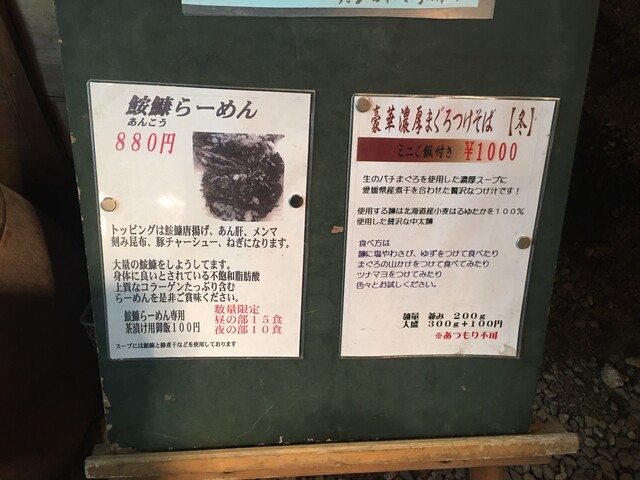 鮟鱇らーめん
あんこう
880円
トッピングは鮟鱇唐揚げ、あん肝、メンマ
刻み昆布、豚チャーシュー、ねぎになります。
大量の鮟鱇をしようしてます。
身体に良いとされている不飽和脂肪酸
上質なコラーゲンたっぷり含む
らーめんを是非ご賞味ください。
鮟鱇らーめん専用
茶漬け用御飯100円
数量限定
昼の部15食
夜の部10食
スープには鮟鱇と鯵煮干などを使用しております
豪華濃厚まぐろつけそば 【冬】
ミニご飯付き ¥1000
生のバチまぐろを使用した濃厚スープに
愛媛県産煮干を合わせた贅沢なつけ汁です！
使用する麺は北海道産小麦はるゆたかを100%
使用した贅沢な中太麺
食べ方は
麺に塩やわさび、ゆずをつけて食べたり
まぐろの山かけをつけて食べてみたり
ツナマヨをつけてみたり
色々とお試しください。
麺量 並み 200g
大盛 300g+100円
※あつもり不可